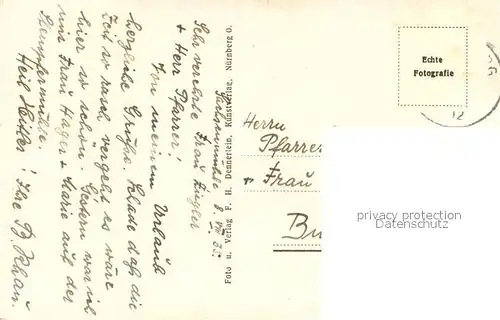 Sachsenmühle 8. VIII 35.
Sehr verehrte Frau Ziegler
+ Herr Pfarrer!
Von meinem Urlaub
herzliche Grüße. Schade daß die
Zeit so rasch vergeht es wäre
hier so schön. Gestern war ich
mit Frau Hager + Marie auf der
Stempfermühle
Heil Hitler! Ihre B. Khan.
Foto u. Verlag F. H. Dennerlein, Kunstverlag, Nürnberg O.
Echte
Fotografie
12
Herrn
Pfarrer
+ Frau
Bu
privacy protection
Datenschutz